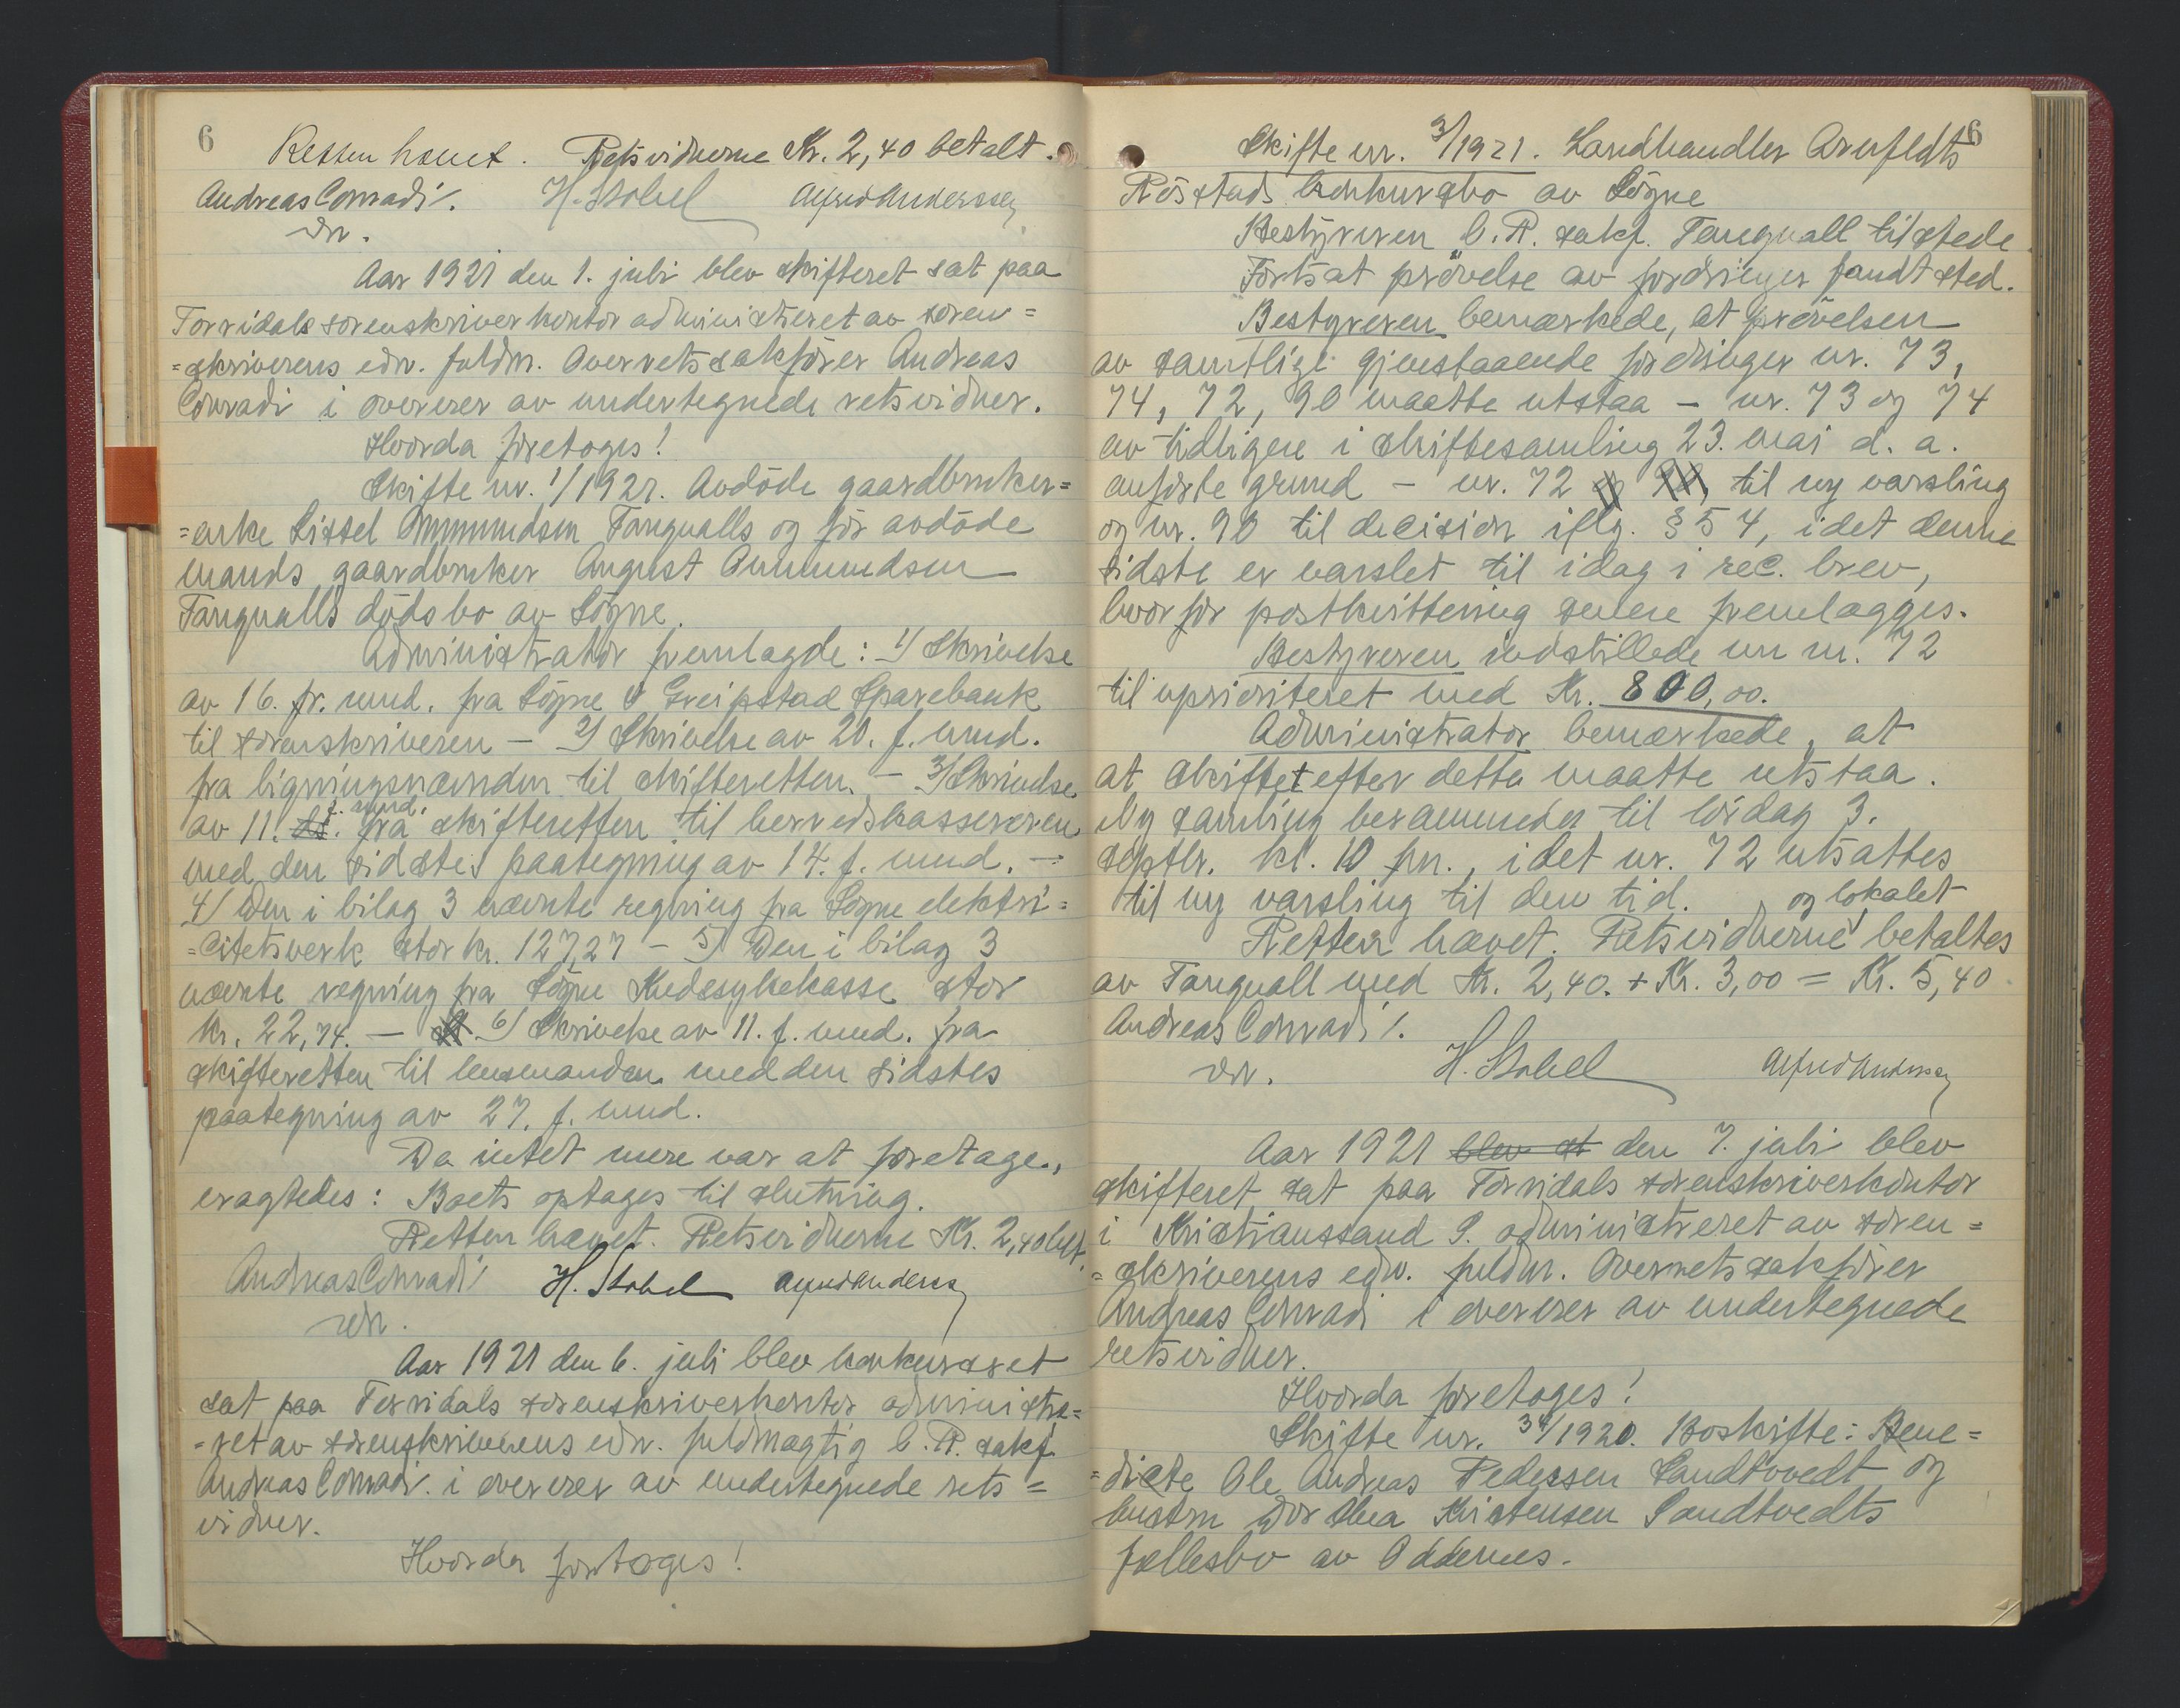 6
Retten hævet. Retsvidnerne Kr. 2,40 betalt.
Andreas Conradi. H. Stabel Alfred Anderssen
edv.
Aar 1921 den 1. juli blev skifteret sat paa
Torridals sorenskriverkontor administreret av soren=
=skriverens edv. fuldm. Overretssakfører Andreas
Conradi i overvær av undertegnede retsvidner.
Hvorda foretoges!
Skifte nr. 1/1921. Avdöde gaardbruker=
=enke Lissel Ommundsen Tangvalls og før avdöde
mands gaardbruker August Ommundsen
Tangvalls dödsbo av Sögne.
Administrator fremlagde: 1) Skrivelse
av 16. fr. mnd. fra Sögne & Greipstad Sparebank
til sorenskriveren - 2) Skrivelse av 20. f. mnd.
fra ligningsnævnden til skifteretten. - 3) Skrivelse
av 11. ds. f. mnd. fra skifteretten til herredskassereren
med den sidstes paategning av 14. f. mnd. -
4) Den i bilag 3 nævnte regning fra Sögne elektri=
=citetsverk stor kr. 127,27 - 5) Den i bilag 3
nævnte regning fra Sögne Kredssykekasse stor
kr. 22,74. - 6) Skrivelse av 11. f. mnd. fra
skifteretten til lensmanden med den sidstes
paategning av 27. f. mnd.
Da intet mere var at foretage,
eragtedes: Boets optages til slutning.
Retten hævet. Retsvidnerne Kr. 2,40 bet.
Andreas Conradi H. Stabel Alfred Anderssen
edv.
Aar 1921 den 6. juli blev konkursret
sat paa Torridals sorenskriverkontor administre=
=ret av sorenskriverens edv. fuldmægtig O. R. sakf.
Andreas Conradi. i overvær av undertegnede rets=
vidner.
Hvorda foretoges!
6
Skifte nr. 3/1921. Landhandler Arnfeldts
Röstads konkursbo av Sögne
Bestyreren O. R. sakf. Tangvall tilstede.
Fortsat prövelse av fordringer fandt sted.
Bestyreren bemærkede, at prövelsen
av samtlige gjenstaaende fordringer nr. 73,
74, 72, 90 maatte utstaa - nr. 73 og 74
av tidligere i skiftesamling 23. mai d. a.
anførte grund - nr. 72 og 90, til ny varsling
og nr. 90 til decision iflg. § 54, idet denne
sidste er varslet til idag i rec. brev,
hvorfor postkvittering senere fremlægges.
Bestyreren indstillede nu nr. 72
til uprioriteret med Kr. 800,00.
Administrator bemærkede, at
at skiftet efter dette maatte utstaa.
Ny samling berammedes til lördag 3.
septbr. kl. 10 fm., idet nr. 72 utsattes
til ny varsling til den tid.
Retten hævet. Retsvidnerne og lokalet betaltes
av Tangvall med Kr. 2,40. + Kr. 3,00 = Kr. 5,40.
Andreas Conradi.
edv. H. Stabel Alfred Anderssen
Aar 1921 blev st den 7. juli blev
skifteret sat paa Torridals sorenskriverkontor
i Kristianssand S. administreret av soren=
=skriverens edv. fuldm. Overretssakfører
Andreas Conradi i overvær av undertegnede
retsvidner.
Hvorda foretoges!
Skifte nr. 34/1920. Boskifte: Bene=
=dicte Ole Andreas Pedersen Sandtvedt og
hustru Dorthea Kristensen Sandtvedts
fællesbo av Oddernes.